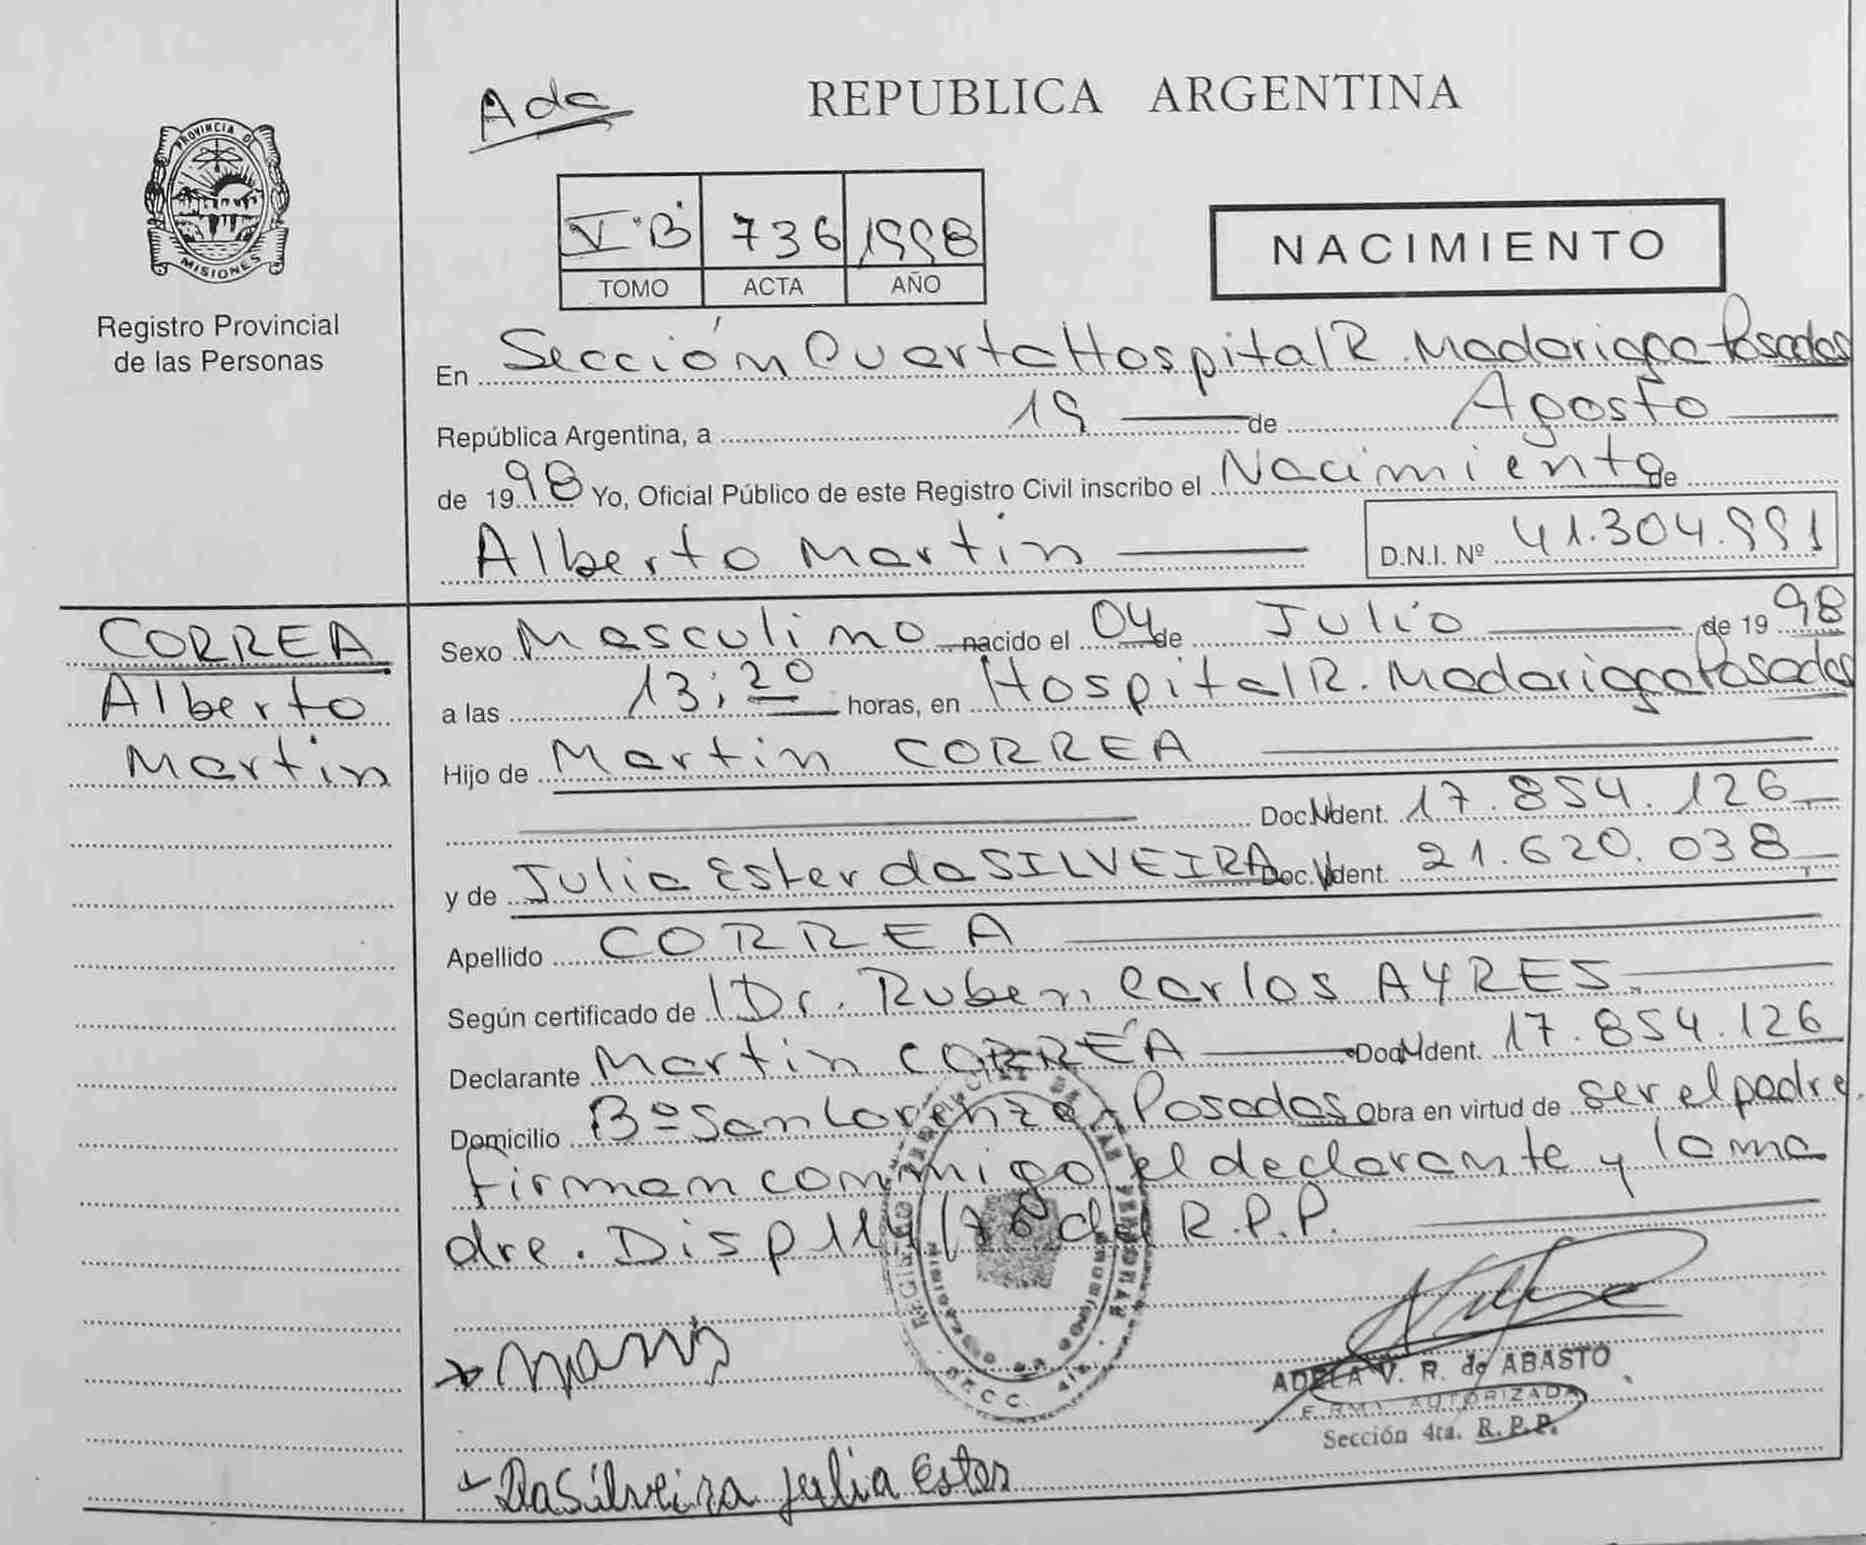 Ada
REPUBLICA ARGENTINA
PROVINCIA DE
MISIONES
Registro Provincial
de las Personas
V "B" 736 1998
TOMO ACTA AÑO
NACIMIENTO
En Sección Cuarta Hospital R. Madariaga Posadas
República Argentina, a 19 de Agosto
de 1998 Yo, Oficial Público de este Registro Civil inscribo el Nacimiento de
Alberto Martin D.N.I. Nº 41.304.991
CORREA
Alberto
Martin
Sexo Masculino nacido el 04 de Julio de 1998
a las 13:20 horas, en Hospital R. Madariaga Posadas
Hijo de Martin CORREA
Doc. Ident. 17.854.126
y de Julia Ester da SILVEIRA Doc. Ident. 21.620.038
Apellido CORREA
Según certificado de Dr. Ruben Carlos AYRES
Declarante Martin CORREA Doc. Ident. 17.854.126
Domicilio Bº San Lorenzo - Posadas Obra en virtud de ser el padre
firman conmigo el declarante y la ma
dre. Disp 114/78 del R.P.P.
ADELA V. R. de ABASTO
FIRMA AUTORIZADA
Sección 4ta. R.P.P.
DaSilveira Julia Ester